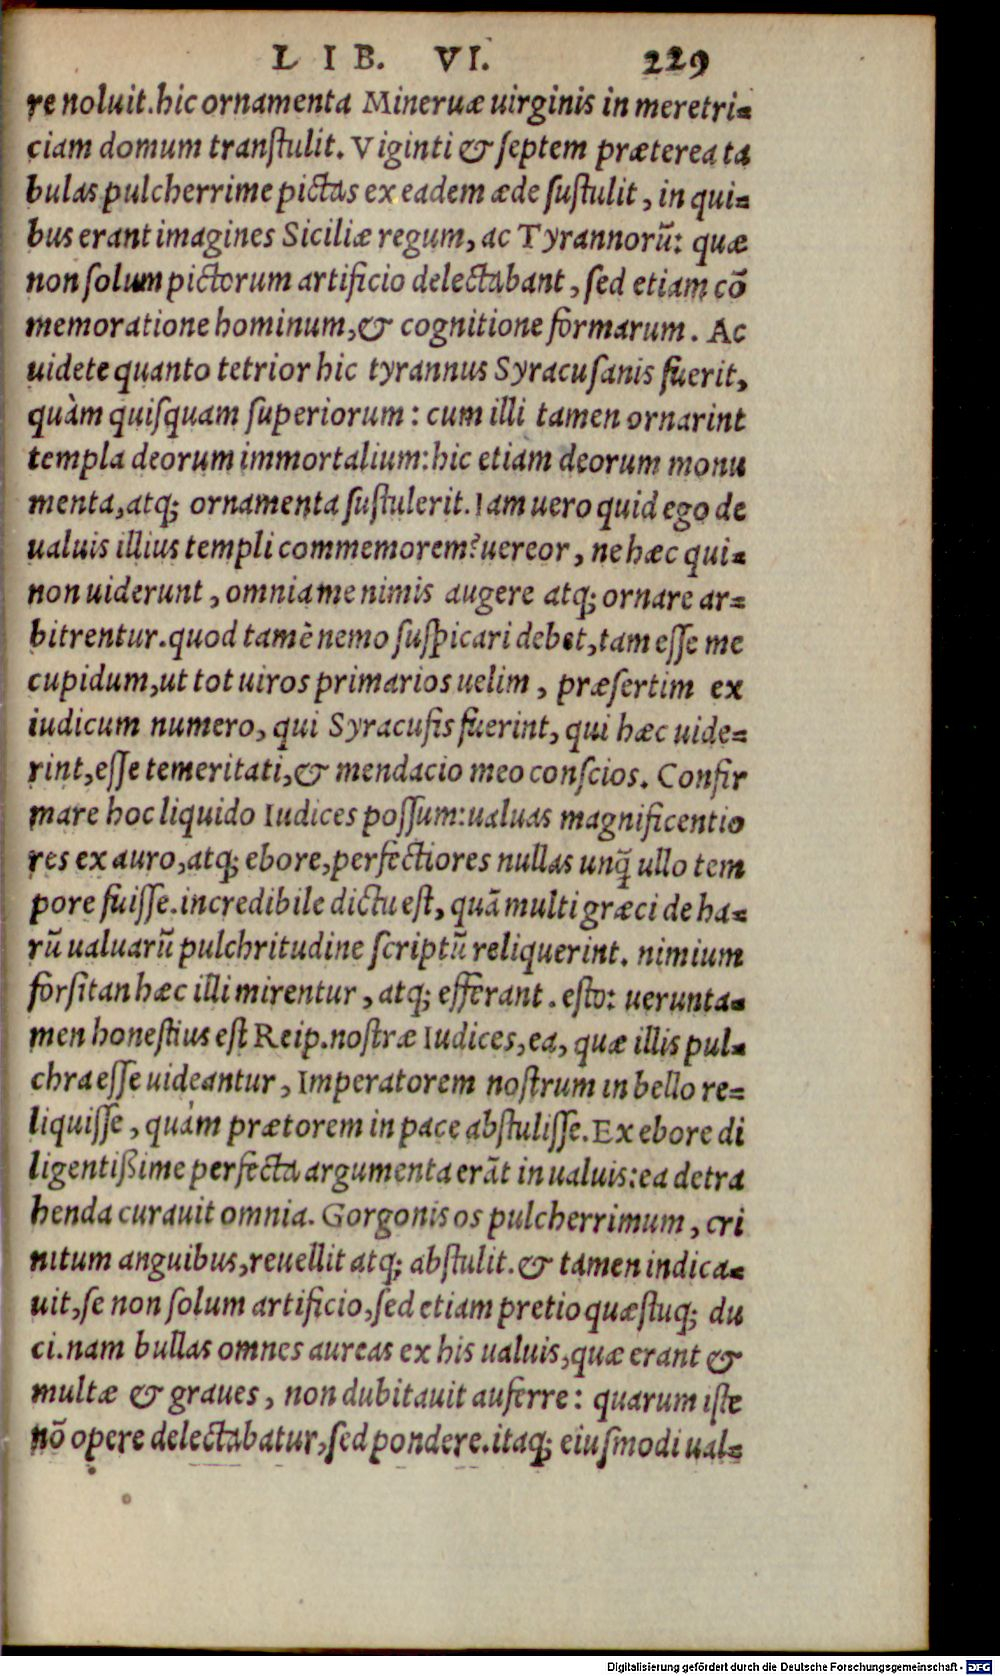 LIB. VI. 229
re noluit.hic ornamenta Mineruæ uirginis in meretri=
ciam domum tranſtulit. Viginti & ſeptem præterea ta
bulas pulcherrime pictas ex eadem æde ſuſtulit, in qui=
bus erant imagines Siciliæ regum, ac Tyrannorū: quæ
non ſolum pictorum artificio delectabant, ſed etiam cō
memoratione hominum,& cognitione formarum. Ac
uidete quanto tetrior hic tyrannus Syracuſanis fuerit,
quàm quiſquam ſuperiorum: cum illi tamen ornarint
templa deorum immortalium:hic etiam deorum monu
menta,atq; ornamenta ſuſtulerit. Iam uero quid ego de
ualuis illius templi commemorem?uereor, ne hæc qui=
non uiderunt, omnia me nimis augere atq; ornare ar=
bitrentur.quod tamē nemo ſuſpicari debet,tam eſſe me
cupidum,ut tot uiros primarios uelim, præſertim ex
iudicum numero, qui Syracuſis fuerint, qui hæc uide=
rint,eſſe temeritati,& mendacio meo conſcios. Confir
mare hoc liquido Iudices poſſum:ualuas magnificentio
res ex auro,atq; ebore,perfectiores nullas unq̃ ullo tem
pore fuiſſe.incredibile dictu eſt, quā multi græci de ha=
rū ualuarū pulchritudine ſcriptū reliquerint. nimium
forſitan hæc illi mirentur, atq; efferant. eſto: uerunta=
men honeſtius eſt Reip.noſtræ Iudices, ea, quæ illis pul=
chra eſſe uideantur, Imperatorem noſtrum in bello re=
liquiſſe, quàm prætorem in pace abſtuliſſe. Ex ebore di
ligentißime perfecta argumenta erāt in ualuis:ea detra
henda curauit omnia. Gorgonis os pulcherrimum, cri
nitum anguibus,reuellit atq; abſtulit.& tamen indica=
uit,ſe non ſolum artificio,ſed etiam pretio quæſtuq; du
ci.nam bullas omnes aureas ex his ualuis,quæ erant &
multæ & graues, non dubitauit auferre: quarum iſte
nō opere delectabatur,ſed pondere.itaq; eiuſmodi ual=
Digitalisierung gefördert durch die Deutsche Forschungsgemeinschaft - DFG